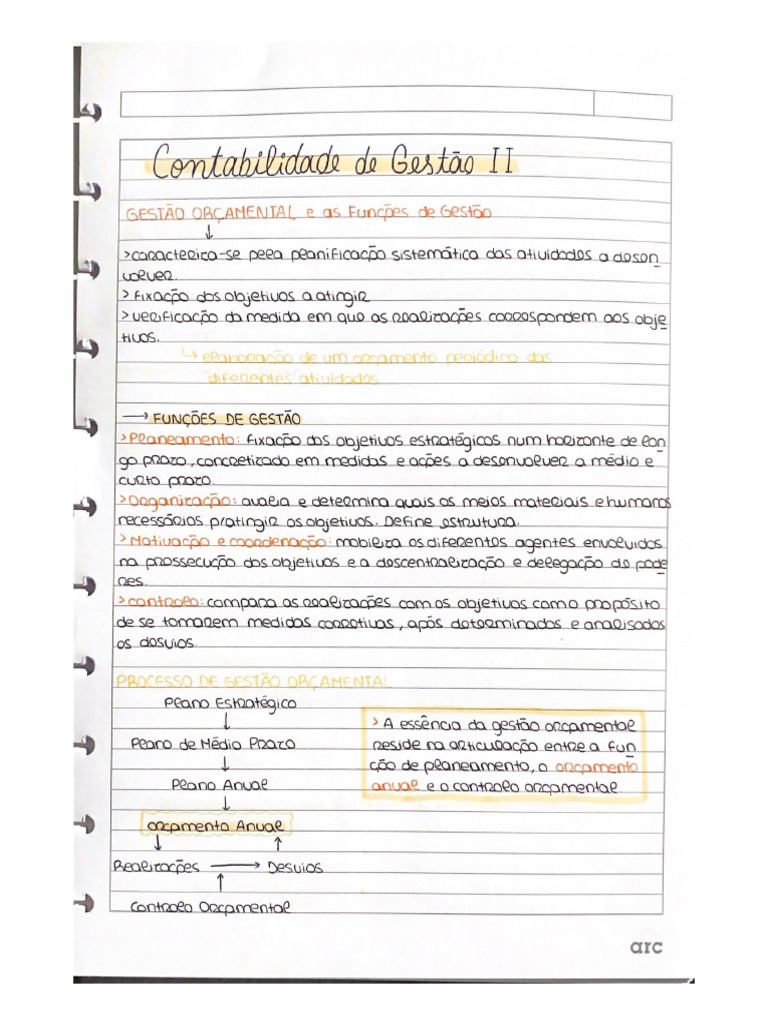 Contabilidade de Gestão II
GESTÃO ORÇAMENTAL e as Funções de Gestão
↓
>caracteriza-se pela planificação sistemática das atividades a desen
volver.
> Fixação dos objetivos a atingir
> verificação da medida em que as realizações correspondem aos obje
tivos.
↳ elaboração de um orçamento periódico das
diferentes atividades
→ FUNÇÕES DE GESTÃO
>Planeamento: fixação dos objetivos estratégicos num horizonte de lon
go prazo, concretizado em medidas e ações a desenvolver a médio e
curto prazo.
>Organização: avalia e determina quais os meios materiais e humanos
necessários p/atingir os objetivos. Define estrutura.
>Motivação e coordenação: mobiliza os diferentes agentes envolvidos
na prossecução dos objetivos e a descentralização e delegação de pode
res.
>controlo: compara as realizações com os objetivos como propósito
de se tomarem medidas corretivas, após determinados e analisados
os desvios.
PROCESSO DE GESTÃO ORÇAMENTAL
Plano Estratégico
↓
Plano de Médio Prazo
↓
Plano Anual
↓
orçamento Anual
↓ ↑
Realizações → Desvios
↑
Controlo Orçamental
> A essência da gestão orçamental
reside na articulação entre a fun
ção de planeamento, o orçamento
anual e o controlo orçamental.
arc